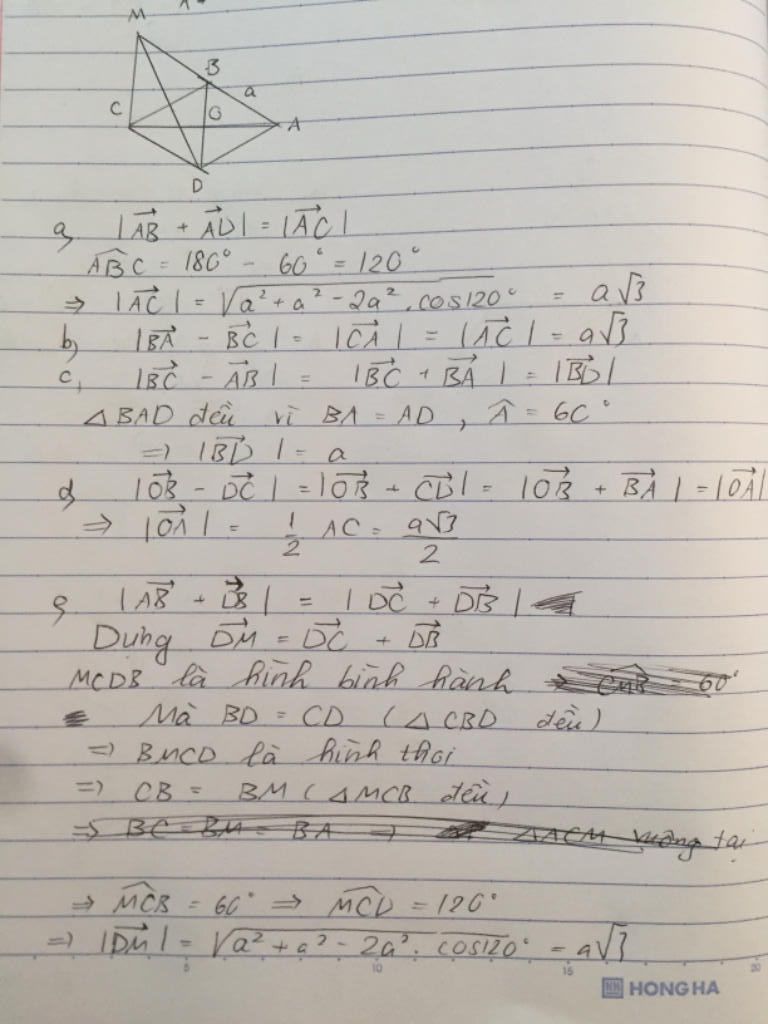 M
B
a
C
O
A
D
a, |AB→ + AD→| = |AC→|
ABC^ = 180° - 60° = 120°
⇒ |AC→| = √(a² + a² - 2a² . cos120°) = a√3
b, |BA→ - BC→| = |CA→| = |AC→| = a√3
c, |BC→ - AB→| = |BC→ + BA→| = |BD→|
△BAD đều vì BA = AD , Â = 60°
⇒ |BD→| = a
d, |OB→ - DC→| = |OB→ + CD→| = |OB→ + BA→| = |OA→|
⇒ |OA→| = 1/2 AC = a√3/2
e, |AB→ + DB→| = |DC→ + DB→|
Dựng DM→ = DC→ + DB→
MCDB là hình bình hành ⇒ CMB^ = 60°
Mà BD = CD (△CBD đều)
⇒ BMCD là hình thoi
⇒ CB = BM (△MCB đều)
⇒ BC = BM = BA ⇒ △ACM vuông tại
⇒ MCB^ = 60° ⇒ MCD^ = 120°
⇒ |DM→| = √(a² + a² - 2a² . cos120°) = a√3
5 10 15 20
HH HONG HA